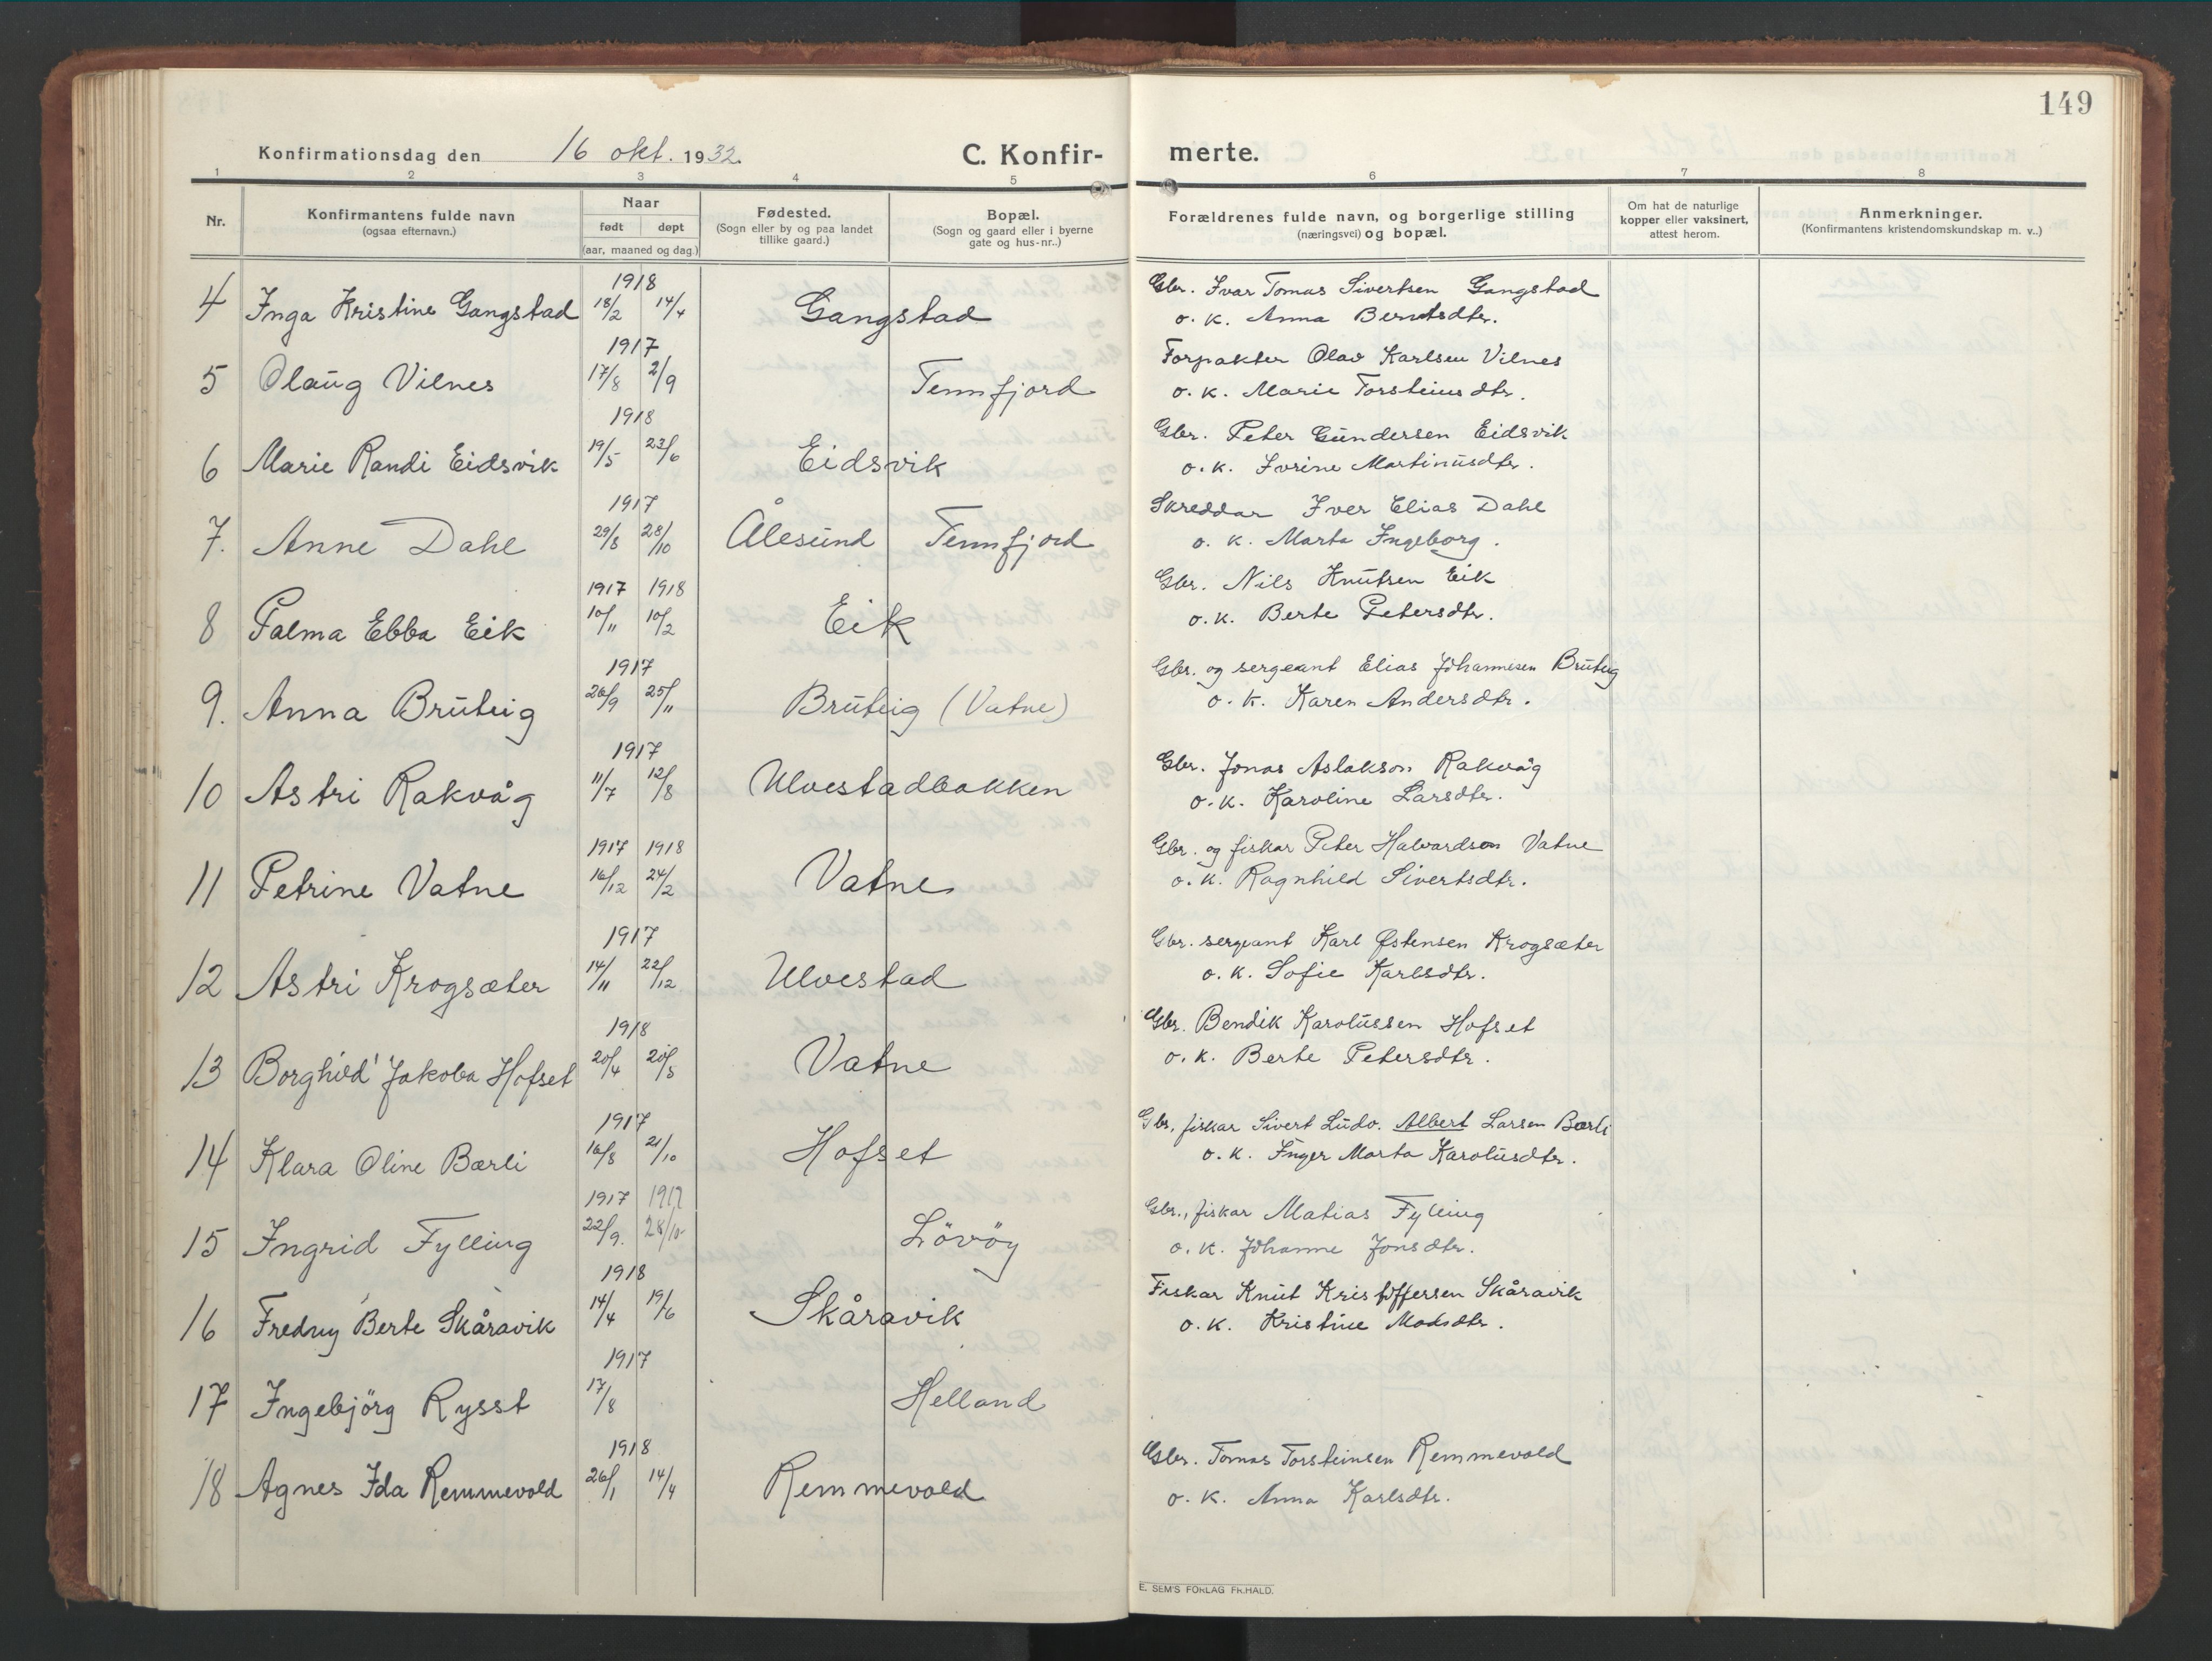 149
Konfirmationsdag den 16 okt. 1932. C. Konfir- merte.
1 2 3 4 5 6 7 8
Nr.
Konfirmantens fulde navn
(ogsaa efternavn.)
Naar
født døpt
(aar, maaned og dag.)
Fødested.
(Sogn eller by og paa landet
tillike gaard.)
Bopæl.
(Sogn og gaard eller i byerne
gate og hus-nr..)
Forældrenes fulde navn, og borgerlige stilling
(næringsvei) og bopæl.
Om hat de naturlige
kopper eller vaksinert,
attest herom.
Anmerkninger.
(Konfirmantens kristendomskundskap m. v..)
1918
4 Inga Kristine Gangstad 18/2 14/4 Gangstad Gbr. Ivar Tomas Sivertsen Gangstad
o. k. Anna Berntsdtr.
1917
5 Olaug Vilnes 17/8 2/9 Tennfjord Forpakter Olav Karlsen Vilnes
o. k. Marie Torsteinsdtr.
1918
6 Marie Randi Eidsvik 19/5 23/6 Eidsvik Gbr. Peter Gundersen Eidsvik
o. k. Ivrine Martinusdtr.
1917
7. Anne Dahl 29/8 28/10 Ålesund Tennfjord Skreddar Iver Elias Dahl
o. k. Marta Ingeborg.
1917 1918
8 Palma Ebba Eik 10/11 10/2 Eik Gbr. Nils Knutsen Eik
o. k. Berte Petersdtr.
1917
9. Anna Bruteig 26/9 25/11 Bruteig (Vatne) Gbr. og sergeant Elias Johannesen Bruteig
o. k. Karen Andersdtr.
1917
10 Astri Rakvåg 11/7 12/8 Ulvestadbakken Gbr. Jonas Aslakson Rakvåg
o. k. Karoline Larsdtr.
1917 1918
11 Petrine Vatne 16/12 24/2 Vatne Gbr. og fiskar Peter Halvardson Vatne
o. k. Ragnhild Sivertsdtr.
1917
12 Astri Krogsæter 14/11 22/12 Ulvestad Gbr. sergeant Karl Østensen Krogsæter
o. k. Sofie Karlsdtr.
1918
13 Borghild Jakoba Hofset 20/4 20/5 Vatne Gbr. Bendik Karolussen Hofset
o. k. Berte Petersdtr.
1917
14 Klara Oline Bærli 16/8 21/10 Hofset Gbr, fiskar Sivert Ludv. Albert Larsen Bærli
o. k. Inger Marta Karolusdtr.
1917 1917
15 Ingrid Fylling 22/9. 28/10 Lövöy Gbr., fiskar Matias Fylling
o. k. Johanne Jonsdtr.
1918
16 Fredny Berte Skåravik 14/4 19/6 Skåravik Fiskar Knut Kristoffersen Skåravik
o. k. Kristine Madsdtr.
1917
17 Ingebjörg Rysst 17/8 Helland
1918
18 Agnes Ida Remmevold 26/1 14/4 Remmevold Gbr. Tomas Torsteinsen Remmevold
o. k. Anna Karlsdtr.
E. SEM'S FORLAG FR.HALD.